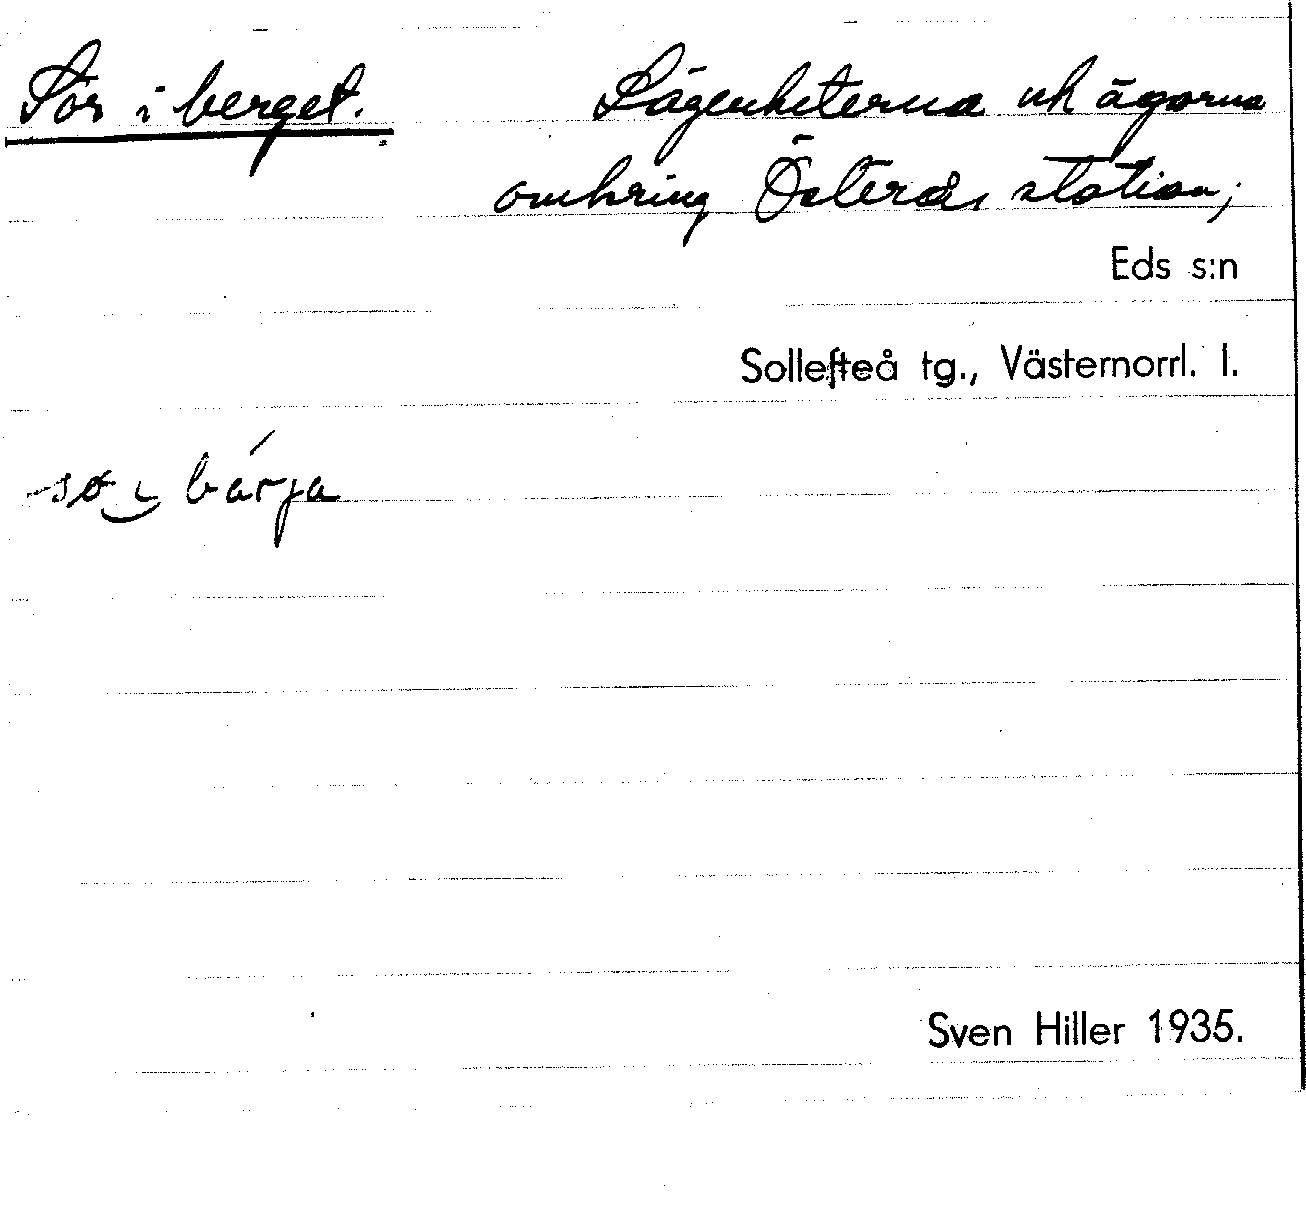 Sör i berget. Lägenheterna och ägorna
omkring Österås station;
Eds s:n
Sollefteå tg., Västernorrl. l.
sø i bárja
Sven Hiller 1935.